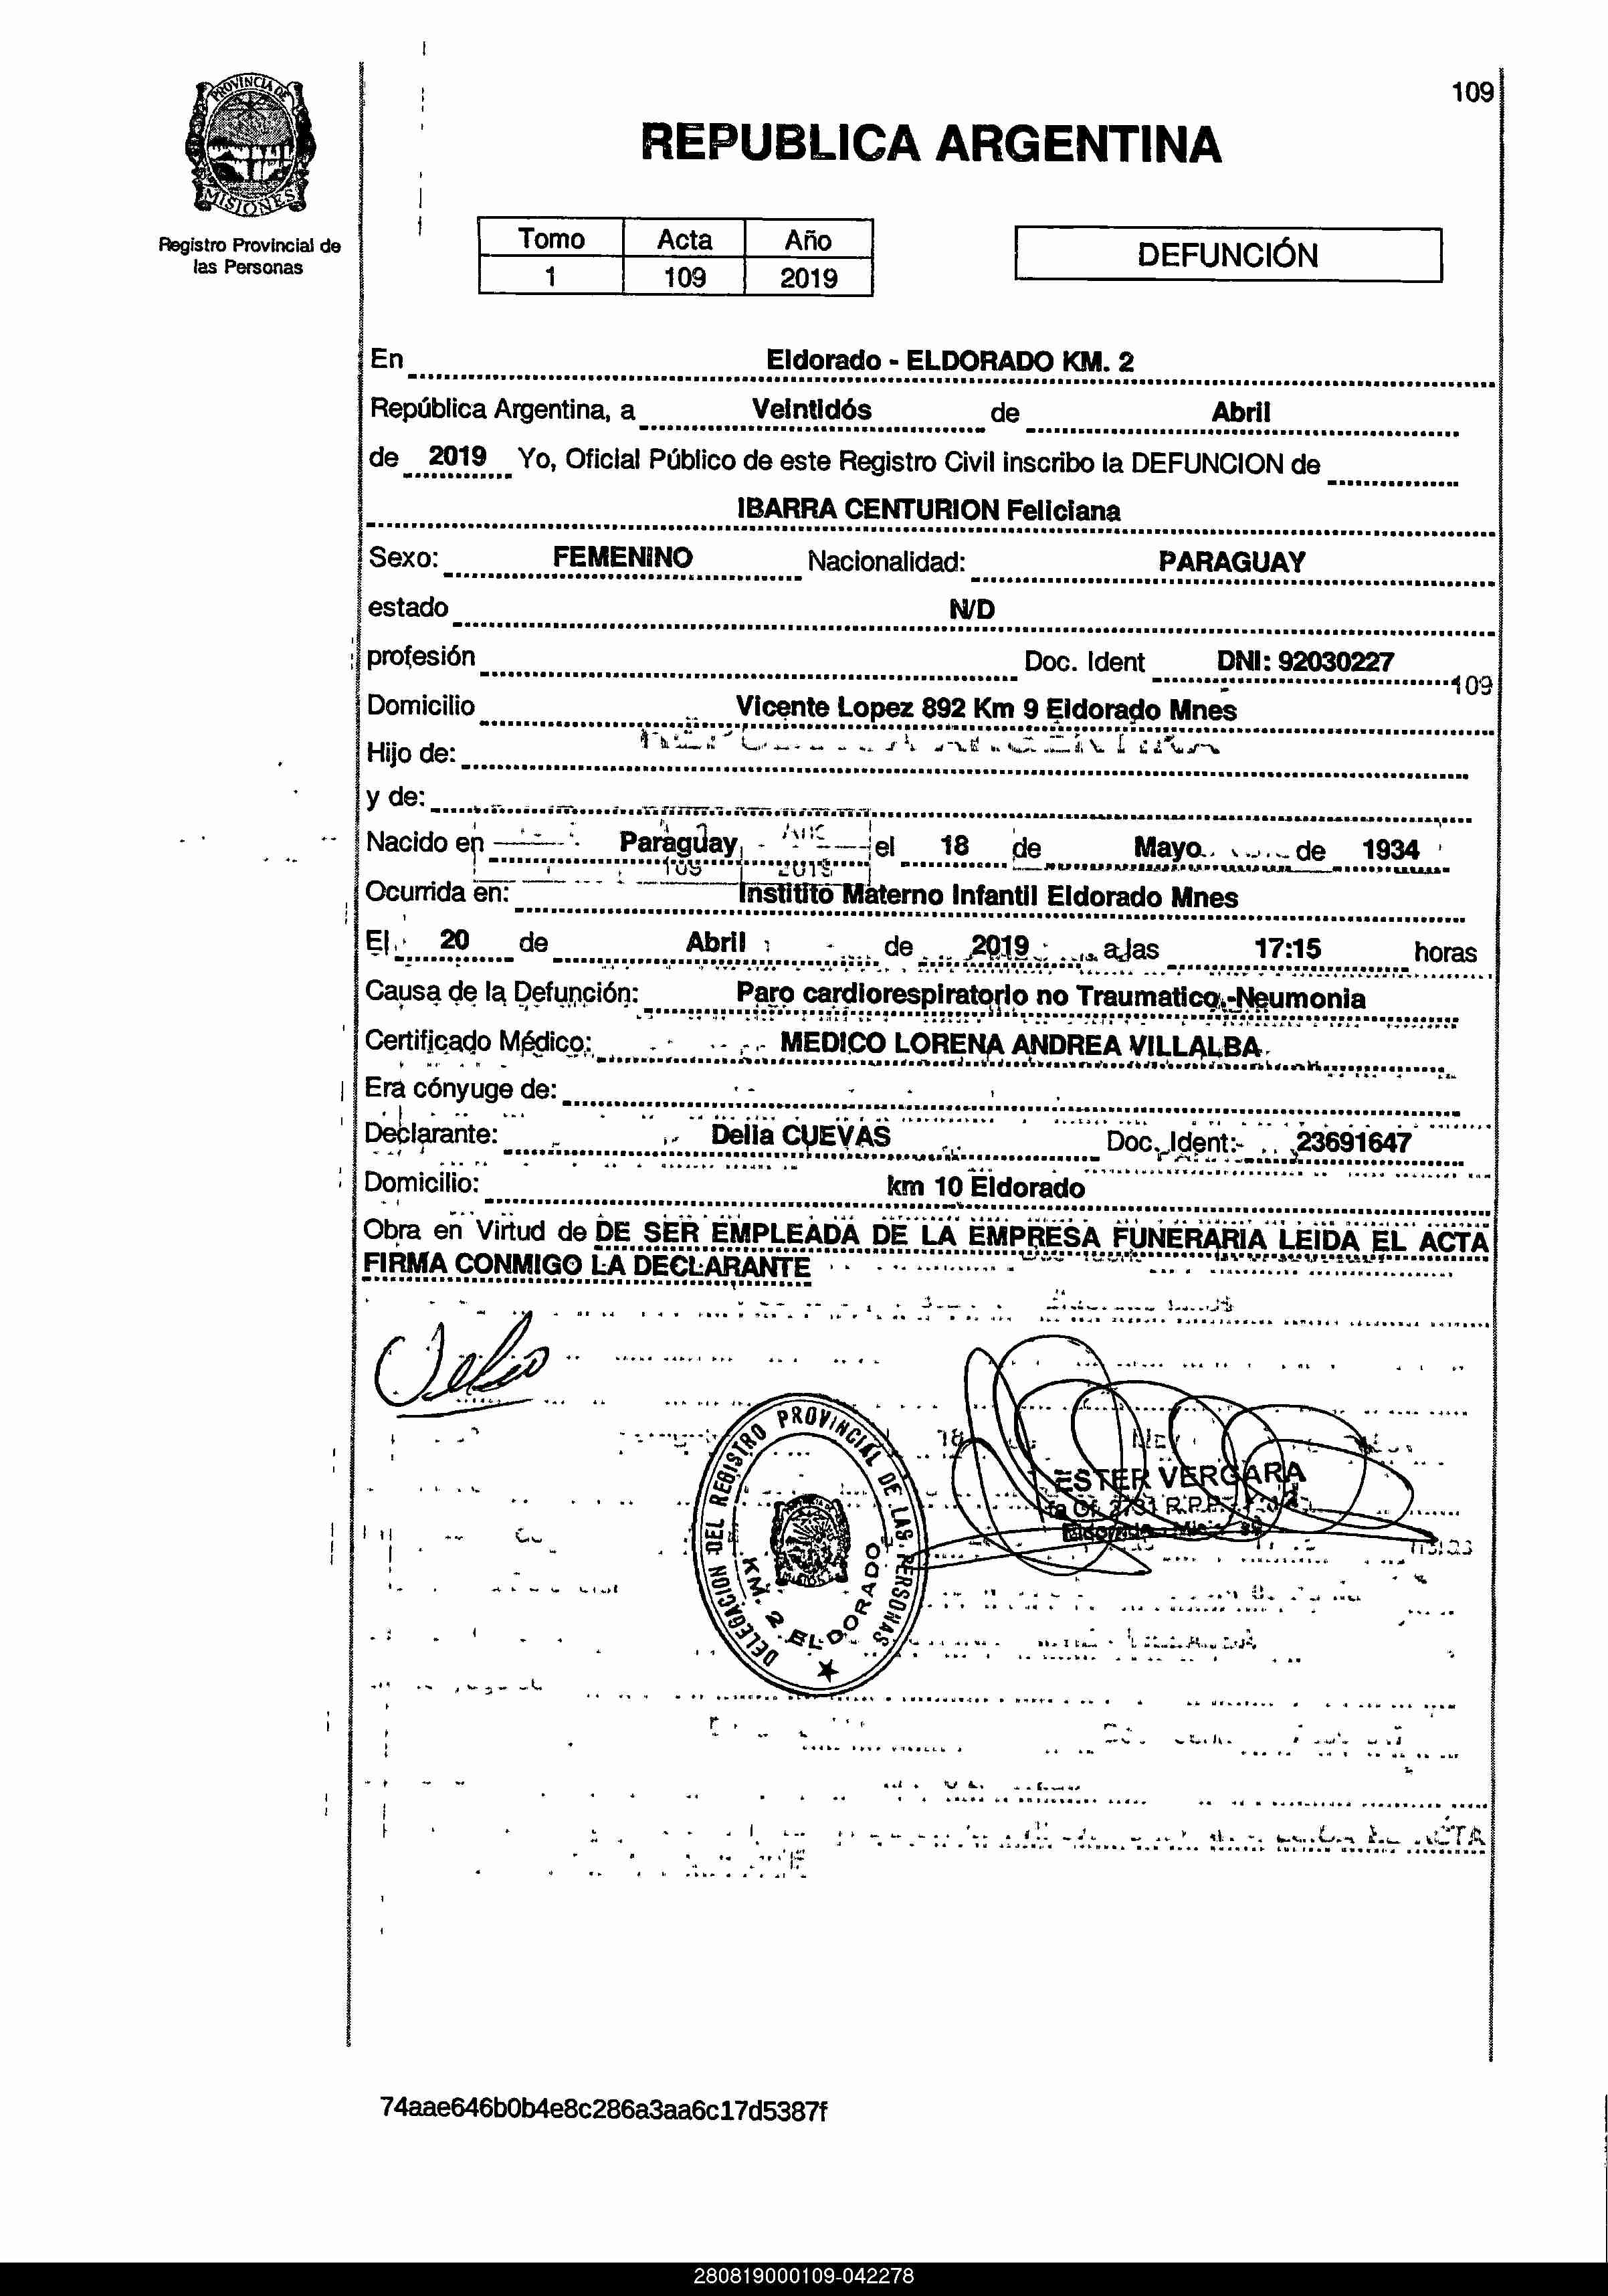 109
PROVINCIA DE
MISIONES
REPUBLICA ARGENTINA
Registro Provincial de
las Personas
Tomo Acta Año
1 109 2019
DEFUNCIÓN
En Eldorado - ELDORADO KM. 2
República Argentina, a Veintidós de Abril
de 2019 Yo, Oficial Público de este Registro Civil inscribo la DEFUNCION de
IBARRA CENTURION Feliciana
Sexo: FEMENINO Nacionalidad: PARAGUAY
estado N/D
profesión Doc. Ident DNI: 92030227
109
Domicilio Vicente Lopez 892 Km 9 Eldorado Mnes
Hijo de:
y de:
Nacido en Paraguay, el 18 de Mayo de 1934
Ocurrida en: Institito Materno Infantil Eldorado Mnes
El 20 de Abril de 2019 a las 17:15 horas
Causa de la Defunción: Paro cardiorespiratorio no Traumatico.-Neumonia
Certificado Médico: MEDICO LORENA ANDREA VILLALBA
Era cónyuge de:
Declarante: Delia CUEVAS Doc. Ident: 23691647
Domicilio: km 10 Eldorado
Obra en Virtud de DE SER EMPLEADA DE LA EMPRESA FUNERARIA LEIDA EL ACTA
FIRMA CONMIGO LA DECLARANTE
DELEGACION DEL REGISTRO PROVINCIAL DE LAS PERSONAS
KM. 2 ELDORADO
ESTER VERGARA
ACTA
74aae646b0b4e8c286a3aa6c17d5387f
280819000109-042278